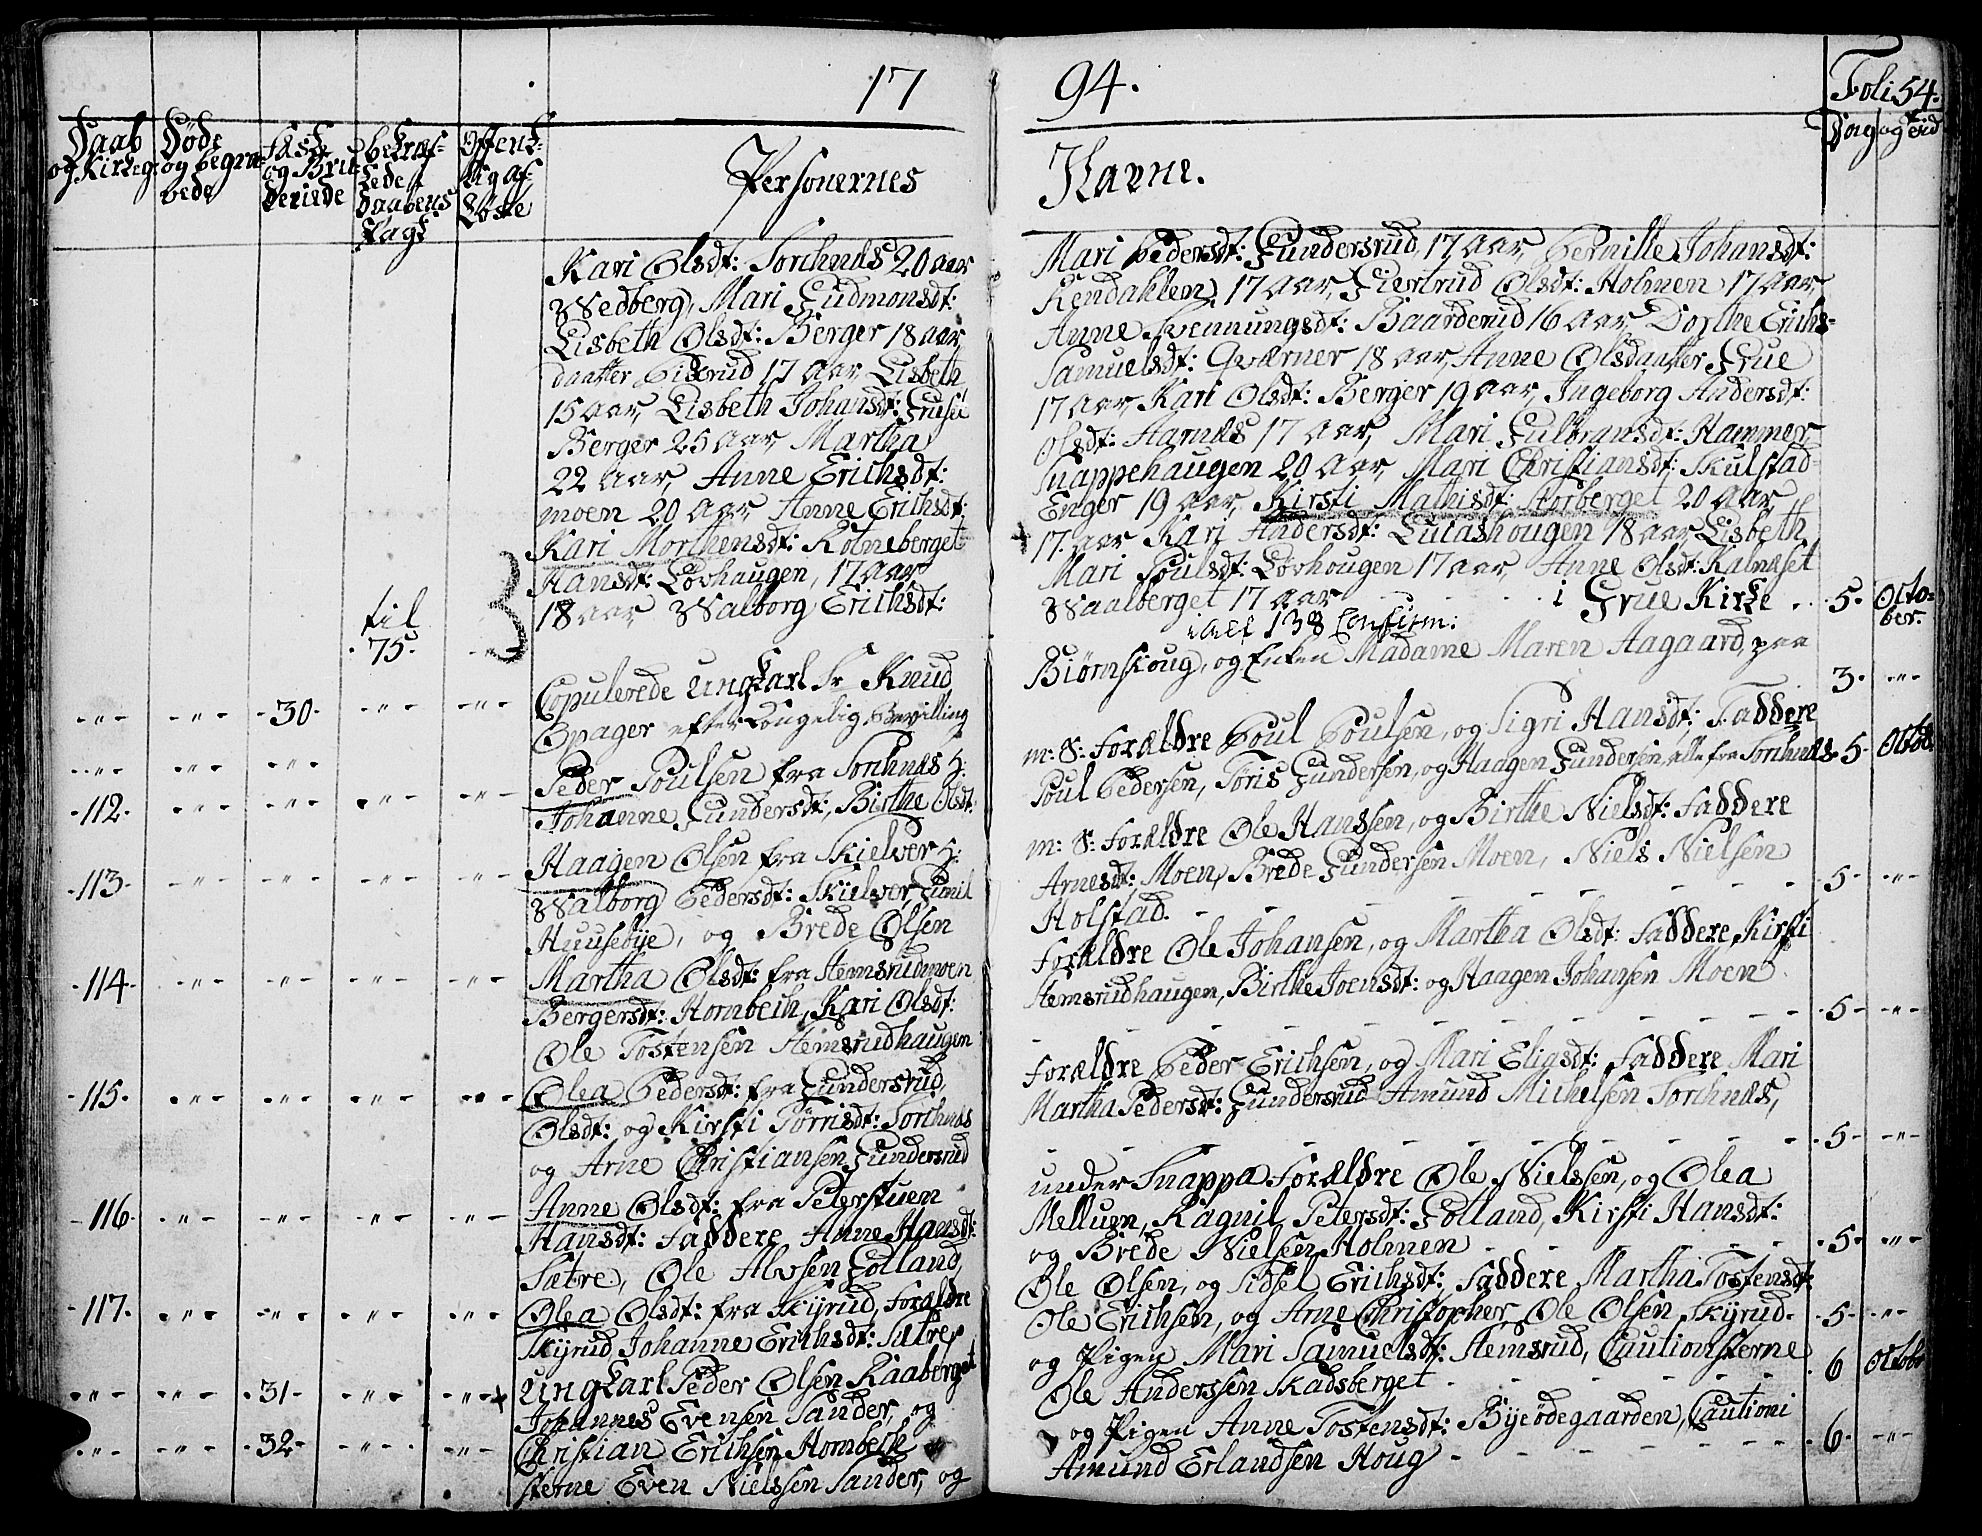 17 94.
Foli 54.
Daab og Kirkeg:
Døde og begra- vede
Fæst og Bru- deviede
bekræf- tede Daabens Pagt
Offent- lig af- løste
Personernes Navne.
Dag og Tid
Kari Olsdt: Sorchnæs 20 aar
Mari Pedersdt: Gundersrud, 17 Aar, Pernille Johansdt:
Wedberg, Mari Gudmonsdt:
Rendahlen, 17 Aar, Giertrud Olsdt: Holmen 17 Aar,
Lisbeth Olsdt: Berger 18 aar,
Anne Svennungsdt: Baarderud 16 Aar, Dorthe Erichs-
daatter 17 Aar Lisbeth
Samuelsdt: Qværner 18 aar, Anne Olsdaatter Grue
15 aar, Lisbeth Johansdt:
17 Aar, Kari Olsdt: Berger 19 aar, Ingeborg Andersdt:
Berger 25 aar Martha
Olsdt: Harnæs 17 Aar, Mari Gulbransdt: Hammer
22 aar, Anne Erichsdt:
Snappehaugen 20 Aar, Mari Christiansdt: Skulstad-
moen 20 aar, Anne Erichsdt:
Enger 19 aar, Kirsti Mathisdt: Torberget 20 aar
Kari Morthensdt: Rolneberget
17. aar Kari Andersdt: Lucashougen 18 aar, Lisbeth
Hansdt: Løvhaugen, 17 Aar
Mari Poulsdt: Løvhougen 17 aar, Anne Olsdt: Kalnæset
18 aar Walborg Erichsdt:
Waalberget 17 aar i Grue Kirke 5 Octo- ber.
til 75.
ialt 138 Confirm:
30 Copulerede Ungkarl Sr Knud
Biørnskoug, og Enken Madame Maren Aagaard, paa 3
Opager efter Kongelig Bevilling
112. Peder Poulsen fra Sorchnæs
m: S: Forældre Poul Poulsen, og Sigri Hansdt: Faddere
Johanne Gundersdt: Birthe Olsdt:
Poul Pedersen, Tøris Gundersen, og Haagen Gundersen, alle fra Sorchnæs 5 Octob.
113. Haagen Olsen fra Skielver
m: S: Forældre Ole Hanssen, og Birthe Nielsdt: Faddere
Walborg Pedersdt: Skielver
Arnesdt: Moen, Brede Gundersen Moen, Niels Nielsen 5
Huusebije, og Brede Olsen
Holstad.
114 Martha Olsdt: fra Hemsrudmoen
Forældre Ole Johansen, og Martha Olsdt: Faddere, Kirsti
Bergersdt: Hornbech, Kari Olsdt:
Hemsrudhaugen, Birthe Joensdt: og Haagen Johansen Moen
Ole Tostensen Hemsrudhaugen 5
115. Olea Pedersdt: fra Gundersrud,
Forældre Peder Erichsen, og Mari Eligsdt: Faddere Mari
Olsdt: og Kirsti Tørrisdt: Sorchnæs
Martha Pedersdt: Gundersrud Amund Michelsen Sorchnæs,
og Arne Christiansen Gundersrud 5
116. Anne Olsdt: fra Peterstuen
under Snappa Forældre Ole Nielssen, og Olea
Hansdt: Faddere Anne Hansdt:
Melluen, Ragnil Petersdt: Golland, Kirsti Hansdt:
Sætre, Ole Alvsen Golland,
og Brede Nielsen Holmen 5
117. Olea Olsdt: fra Skyrud, Forældre
Ole Olsen, og Sidsel Erichsdt: Faddere Martha Tostensdt:
Skyrud Johanne Erichsdt: Sætre,
Ole Erichsen, og Arne Christopher Ole Olsen Skyrud. 5
31 Ungkarl Peder Olsen Raaberget
og Pigen Mari Samuelsdt: Hemsrud, Cautionisterne 6 Octobr
Johannes Evensen Sander, og
Ole Anderssen Skadsberget
32 Christian Erichsen Hornbech
og Pigen Anne Tostensdt: Byeødegaarden, Cautioni 6
sterne Even Nielssen Sander, og
Amund Erlandsen Houg